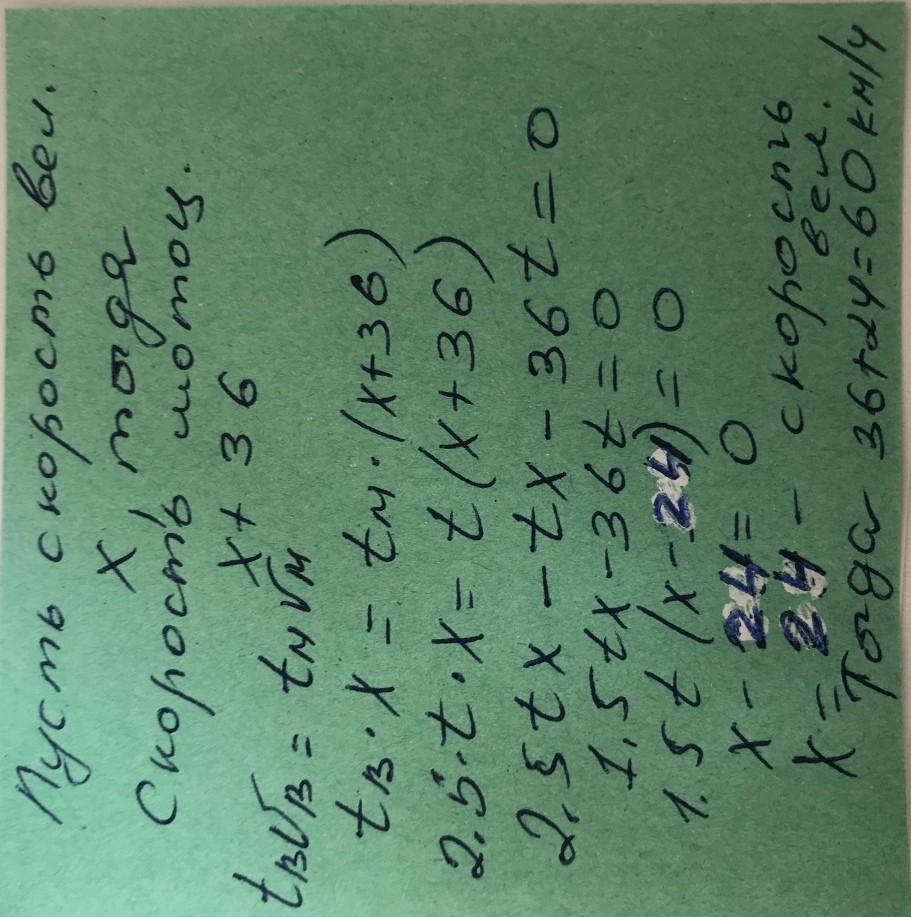 Пусть скорость вел.
x, тогда
Скорость мотоц.
x + 36
tвVв = tмVм
tв · x = tм · (x+36)
2.5 · t · x = t (x+36)
2.5tx - tx - 36t = 0
1.5tx - 36t = 0
1.5t (x - 24) = 0
x - 24 = 0
x = 24 - скорость вел.
Тогда 36+24=60 км/ч